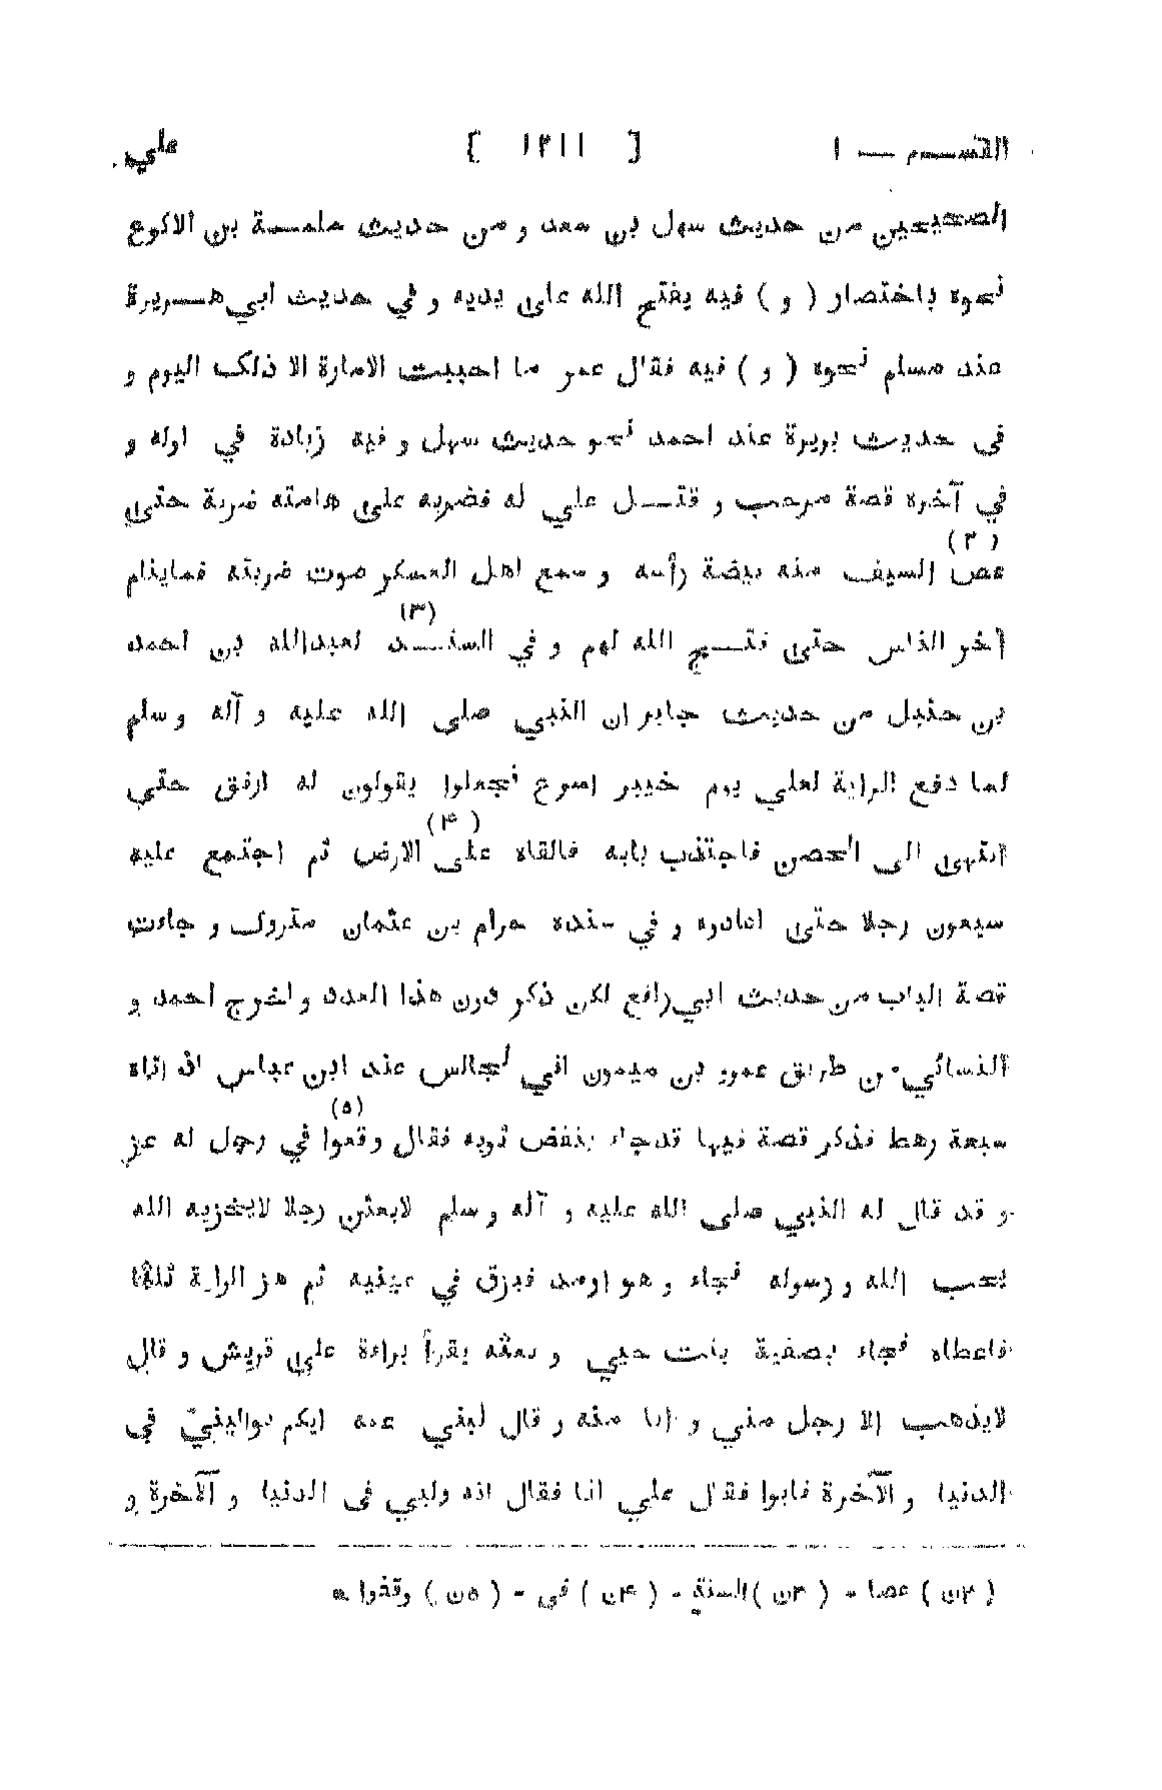 القسم — ١ [ ١٢١١ ] علي
الصحيحين من حديث سهل بن سعد و من حديث سلمة بن الاكوع
نحوه باختصار ( و ) فيه يفتح الله على يديه و في حديث ابي هريرة
عند مسلم نحوه ( و ) فيه فقال عمر ما احببت الامارة الا ذلك اليوم و
في حديث بريرة عند احمد نحو حديث سهل و فيه زيادة في اوله و
في آخره قصة مرحب و قتل علي له فضربه على هامته ضربة حتى
(٢)
عض السيف منه بيضة رأسه و سمع اهل العسكر صوت ضربته فماينام
(٣)
آخر الناس حتى فتح الله لهم و في السند لعبدالله بن احمد
بن حنبل من حديث جابر ان النبي صلى الله عليه و آله و سلم
لما دفع الراية لعلي يوم خيبر اسرع فجعلوا يقولون له ارفق حتي
(۴)
انتهى الى الحصن فاجتذب بابه فالقاه على الارض ثم اجتمع عليه
سبعون رجلا حتى اعادوه و في سنده حرام بن عثمان متروك و جاءت
قصة الباب من حديث ابي رافع لكن ذكر دون هذا العدد و اخرج احمد و
النسائي من طريق عمرو بن ميمون اني لجالس عند ابن عباس اذ اتاه
(٥)
سبعة رهط فذكر قصة فيها قدجاء ينفض ثوبه فقال وقعوا في رجل له عز
و قد قال له النبي صلى الله عليه و آله و سلم لابعثن رجلا لايخزيه الله
يحب الله و رسوله فجاء و هو ارمد فبزق في عينيه ثم هز الراية ثلثا
فاعطاه فجاء بصفية بنت حيي و بعثه يقرأ براءة على قريش و قال
لايذهب الا رجل مني و انا منه و قال لبني عمه ايكم يواليني في
الدنيا و الآخرة فابوا فقال علي انا فقال انه وليي فى الدنيا و الآخرة و
( ٢ن ) عصا - ( ٣ن ) السنة - ( ۴ن ) فى - ( ٥ن ) وقفوا *